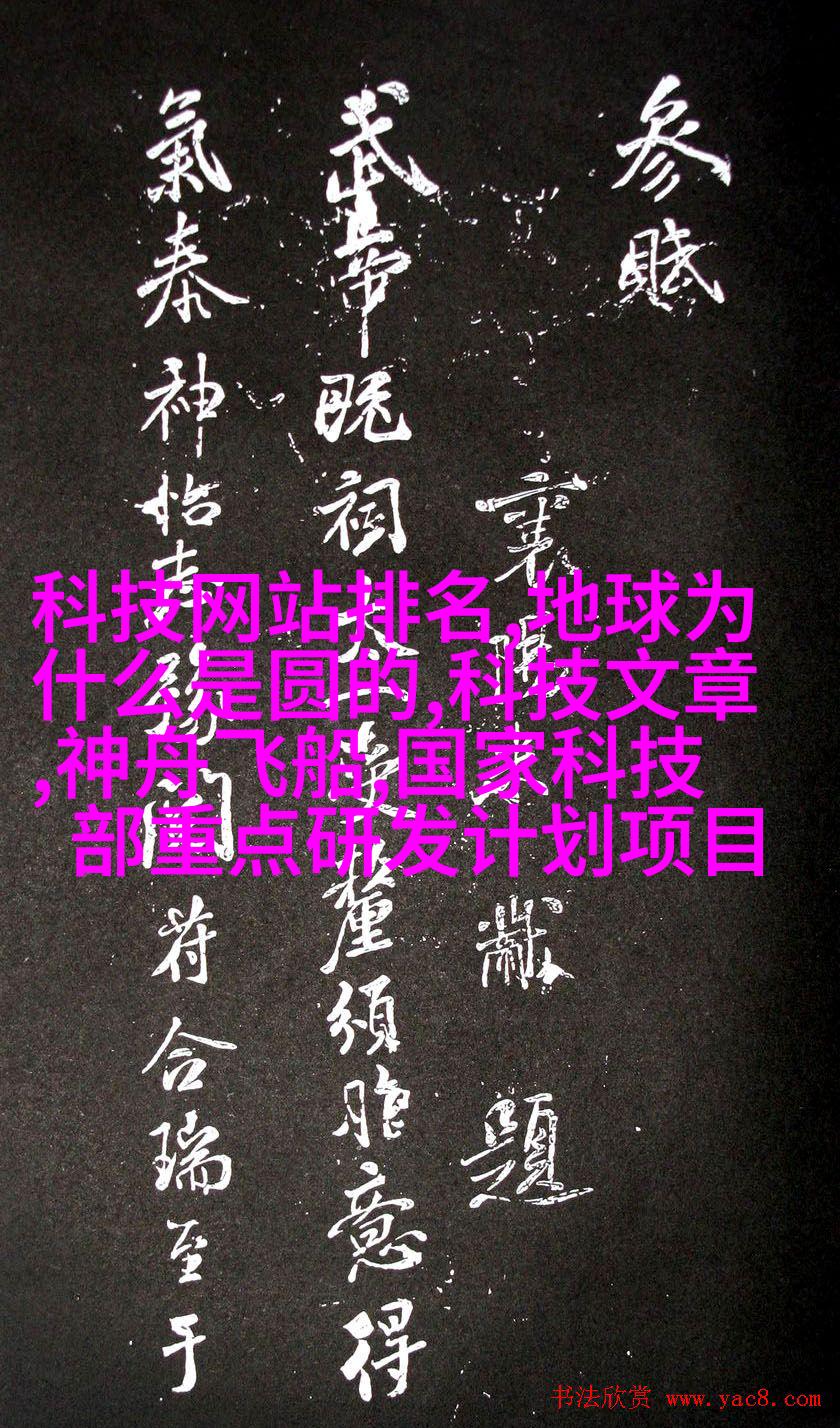 參賦
襄陽黻題
武帝既祠太一受釐頒胙意得
氣泰神怡志豫開符合瑞至于
科技网站排名,地球为
什么是圆的,科技文章
,神舟飞船,国家科技
部重点研发计划项目
书法欣赏 www.yac8.com